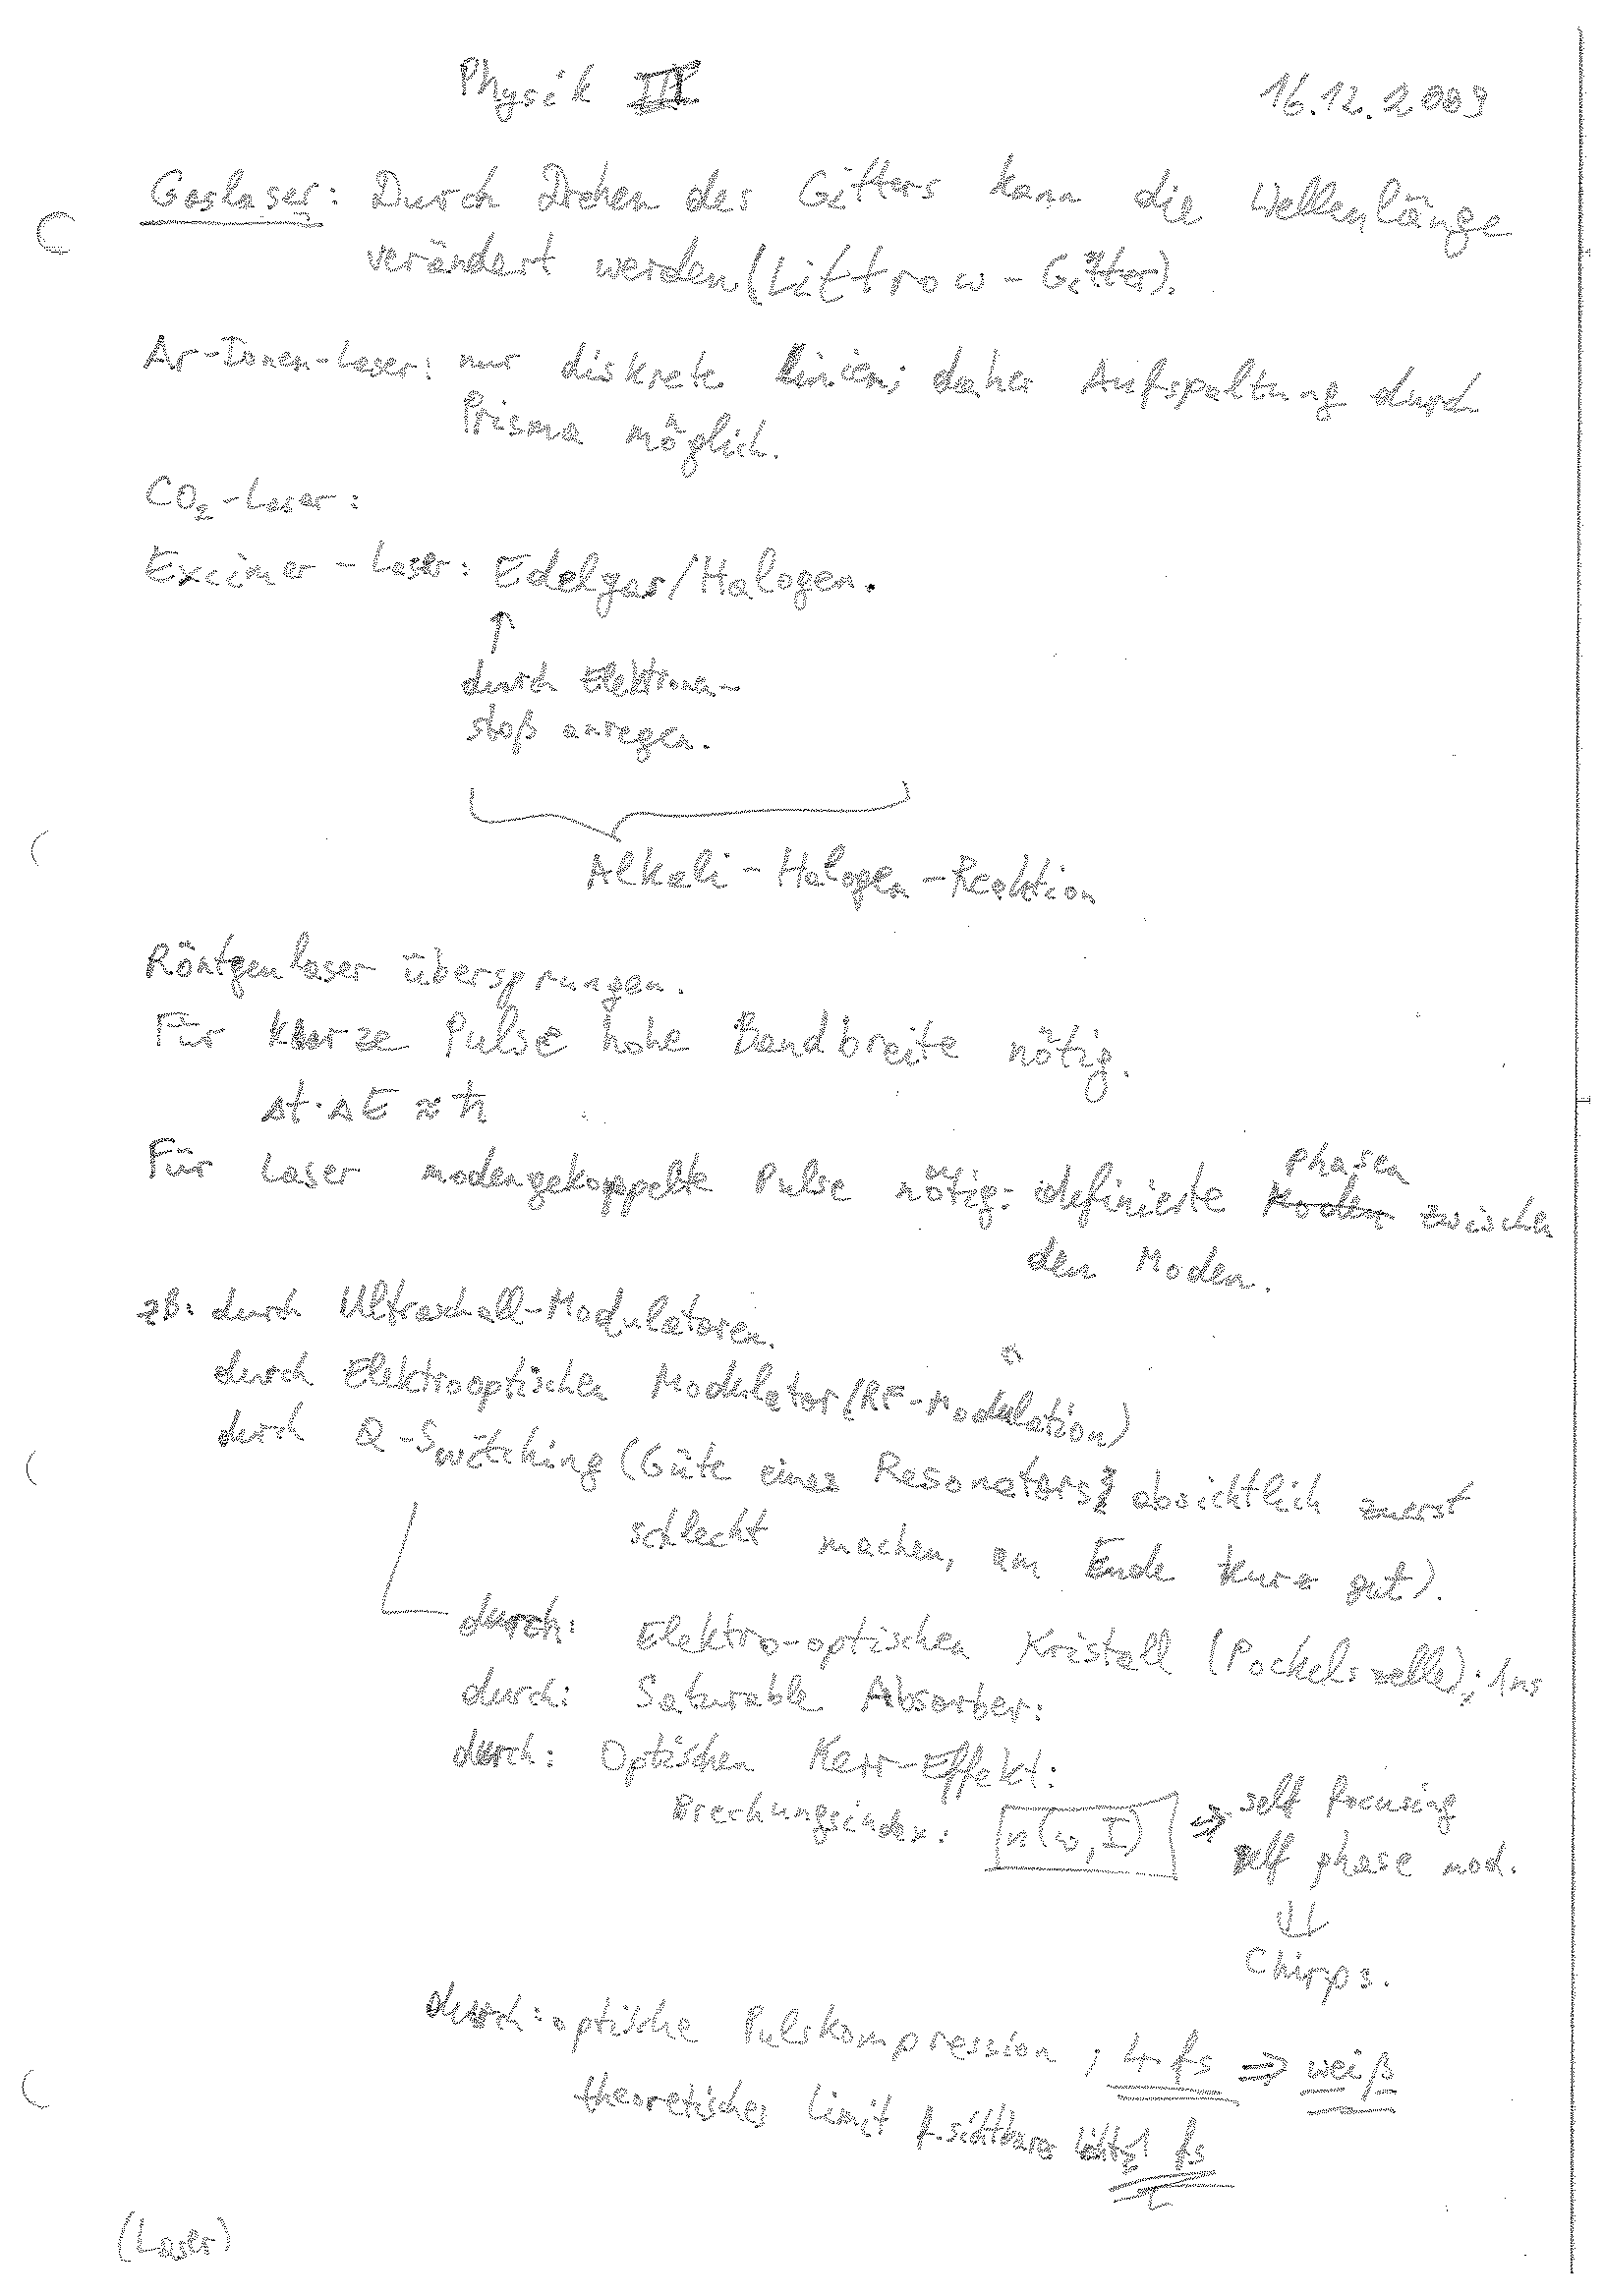 Physik III
16.12.2009
Gaslaser: Durch Drehen des Gitters kann die Wellenlänge
verändert werden (Littrow-Gitter).
Ar-Ionen-Laser: nur diskrete Linien; daher Aufspaltung durch
Prisma möglich.
CO₂-Laser:
Excimer-Laser: Edelgas/Halogen.
↑
durch Elektronen-
stoß anregen.
Alkali-Halogen-Reaktion
Röntgenlaser übersprungen.
Für kurze Pulse hohe Bandbreite nötig.
Δt·ΔE ≈ ħ
Für Laser modengekoppelte Pulse nötig: definierte Moden phasen zwischen
den Moden.
zB: durch Ultraschall-Modulatoren.
durch Elektrooptischen Modulator (RF-Modulation)
durch Q-Switching (Güte eines Resonators absichtlich zuerst
schlecht machen, am Ende kurz gut).
durch: Elektro-optischen Kristall (Pockelszelle); 1ns
durch: Saturable Absorber:
durch: Optischen Kerr-Effekt:
Brechungsindex: n(ω,I) ⇒ self focusing
self phase mod.
⇓
Chirps.
durch: optische Pulskompression; 4 fs ⇒ weiß
theoretisches Limit f. sichtbares Licht 1 fs
(Laser)